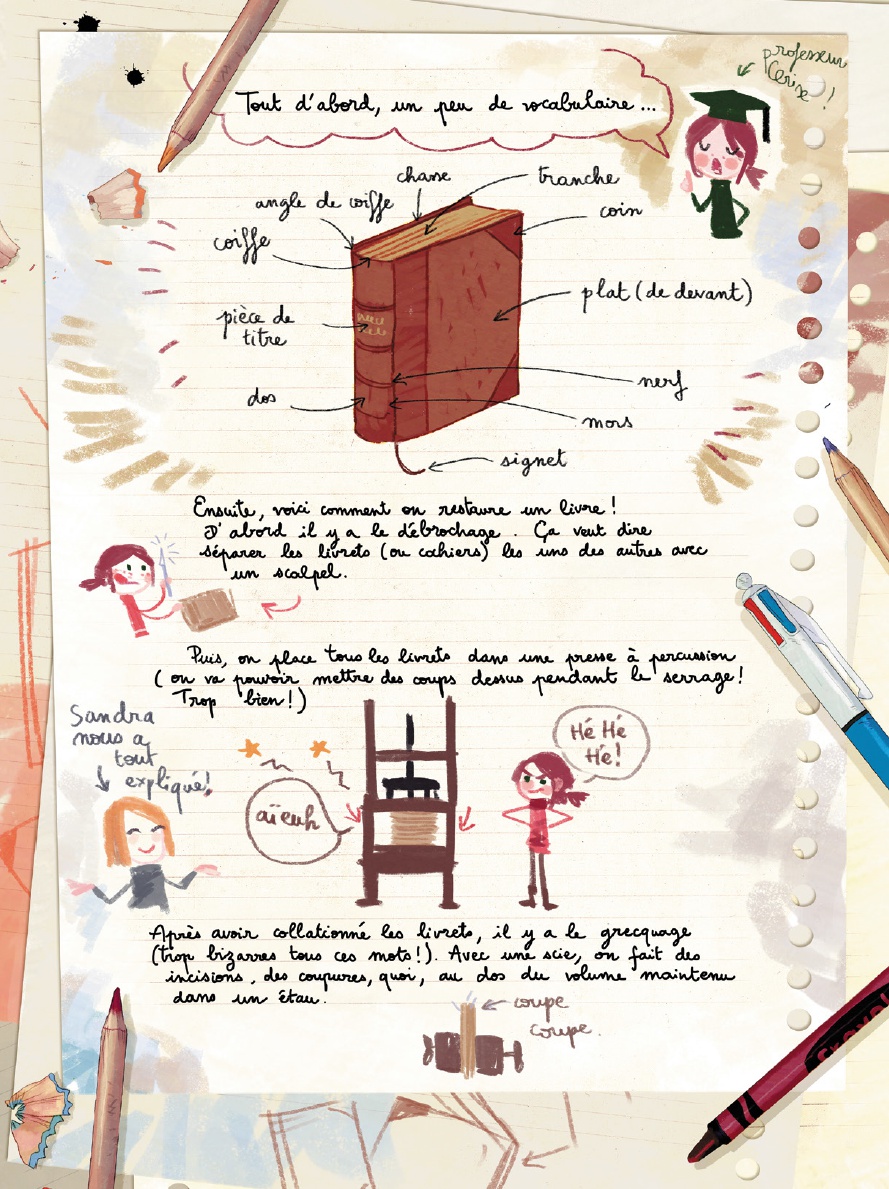 professeur
Cerise !
Tout d'abord, un peu de vocabulaire ...
chasse
tranche
angle de coiffe
coin
coiffe
plat (de devant)
pièce de
titre
nerf
dos
mors
signet
Ensuite, voici comment on restaure un livre !
D'abord il y a le débrochage . Ça veut dire
séparer les livrets (ou cahiers) les uns des autres avec
un scalpel.
Puis, on place tous les livrets dans une presse à percussion
( on va pouvoir mettre des coups dessus pendant le serrage !
Trop bien ! )
Sandra
nous a
tout
expliqué !
Hé Hé
Hé !
aïeuh
Après avoir collationné les livrets, il y a le grecquage
(trop bizarres tous ces mots !). Avec une scie, on fait des
incisions, des coupures, quoi, au dos du volume maintenu
dans un étau.
coupe
coupe.